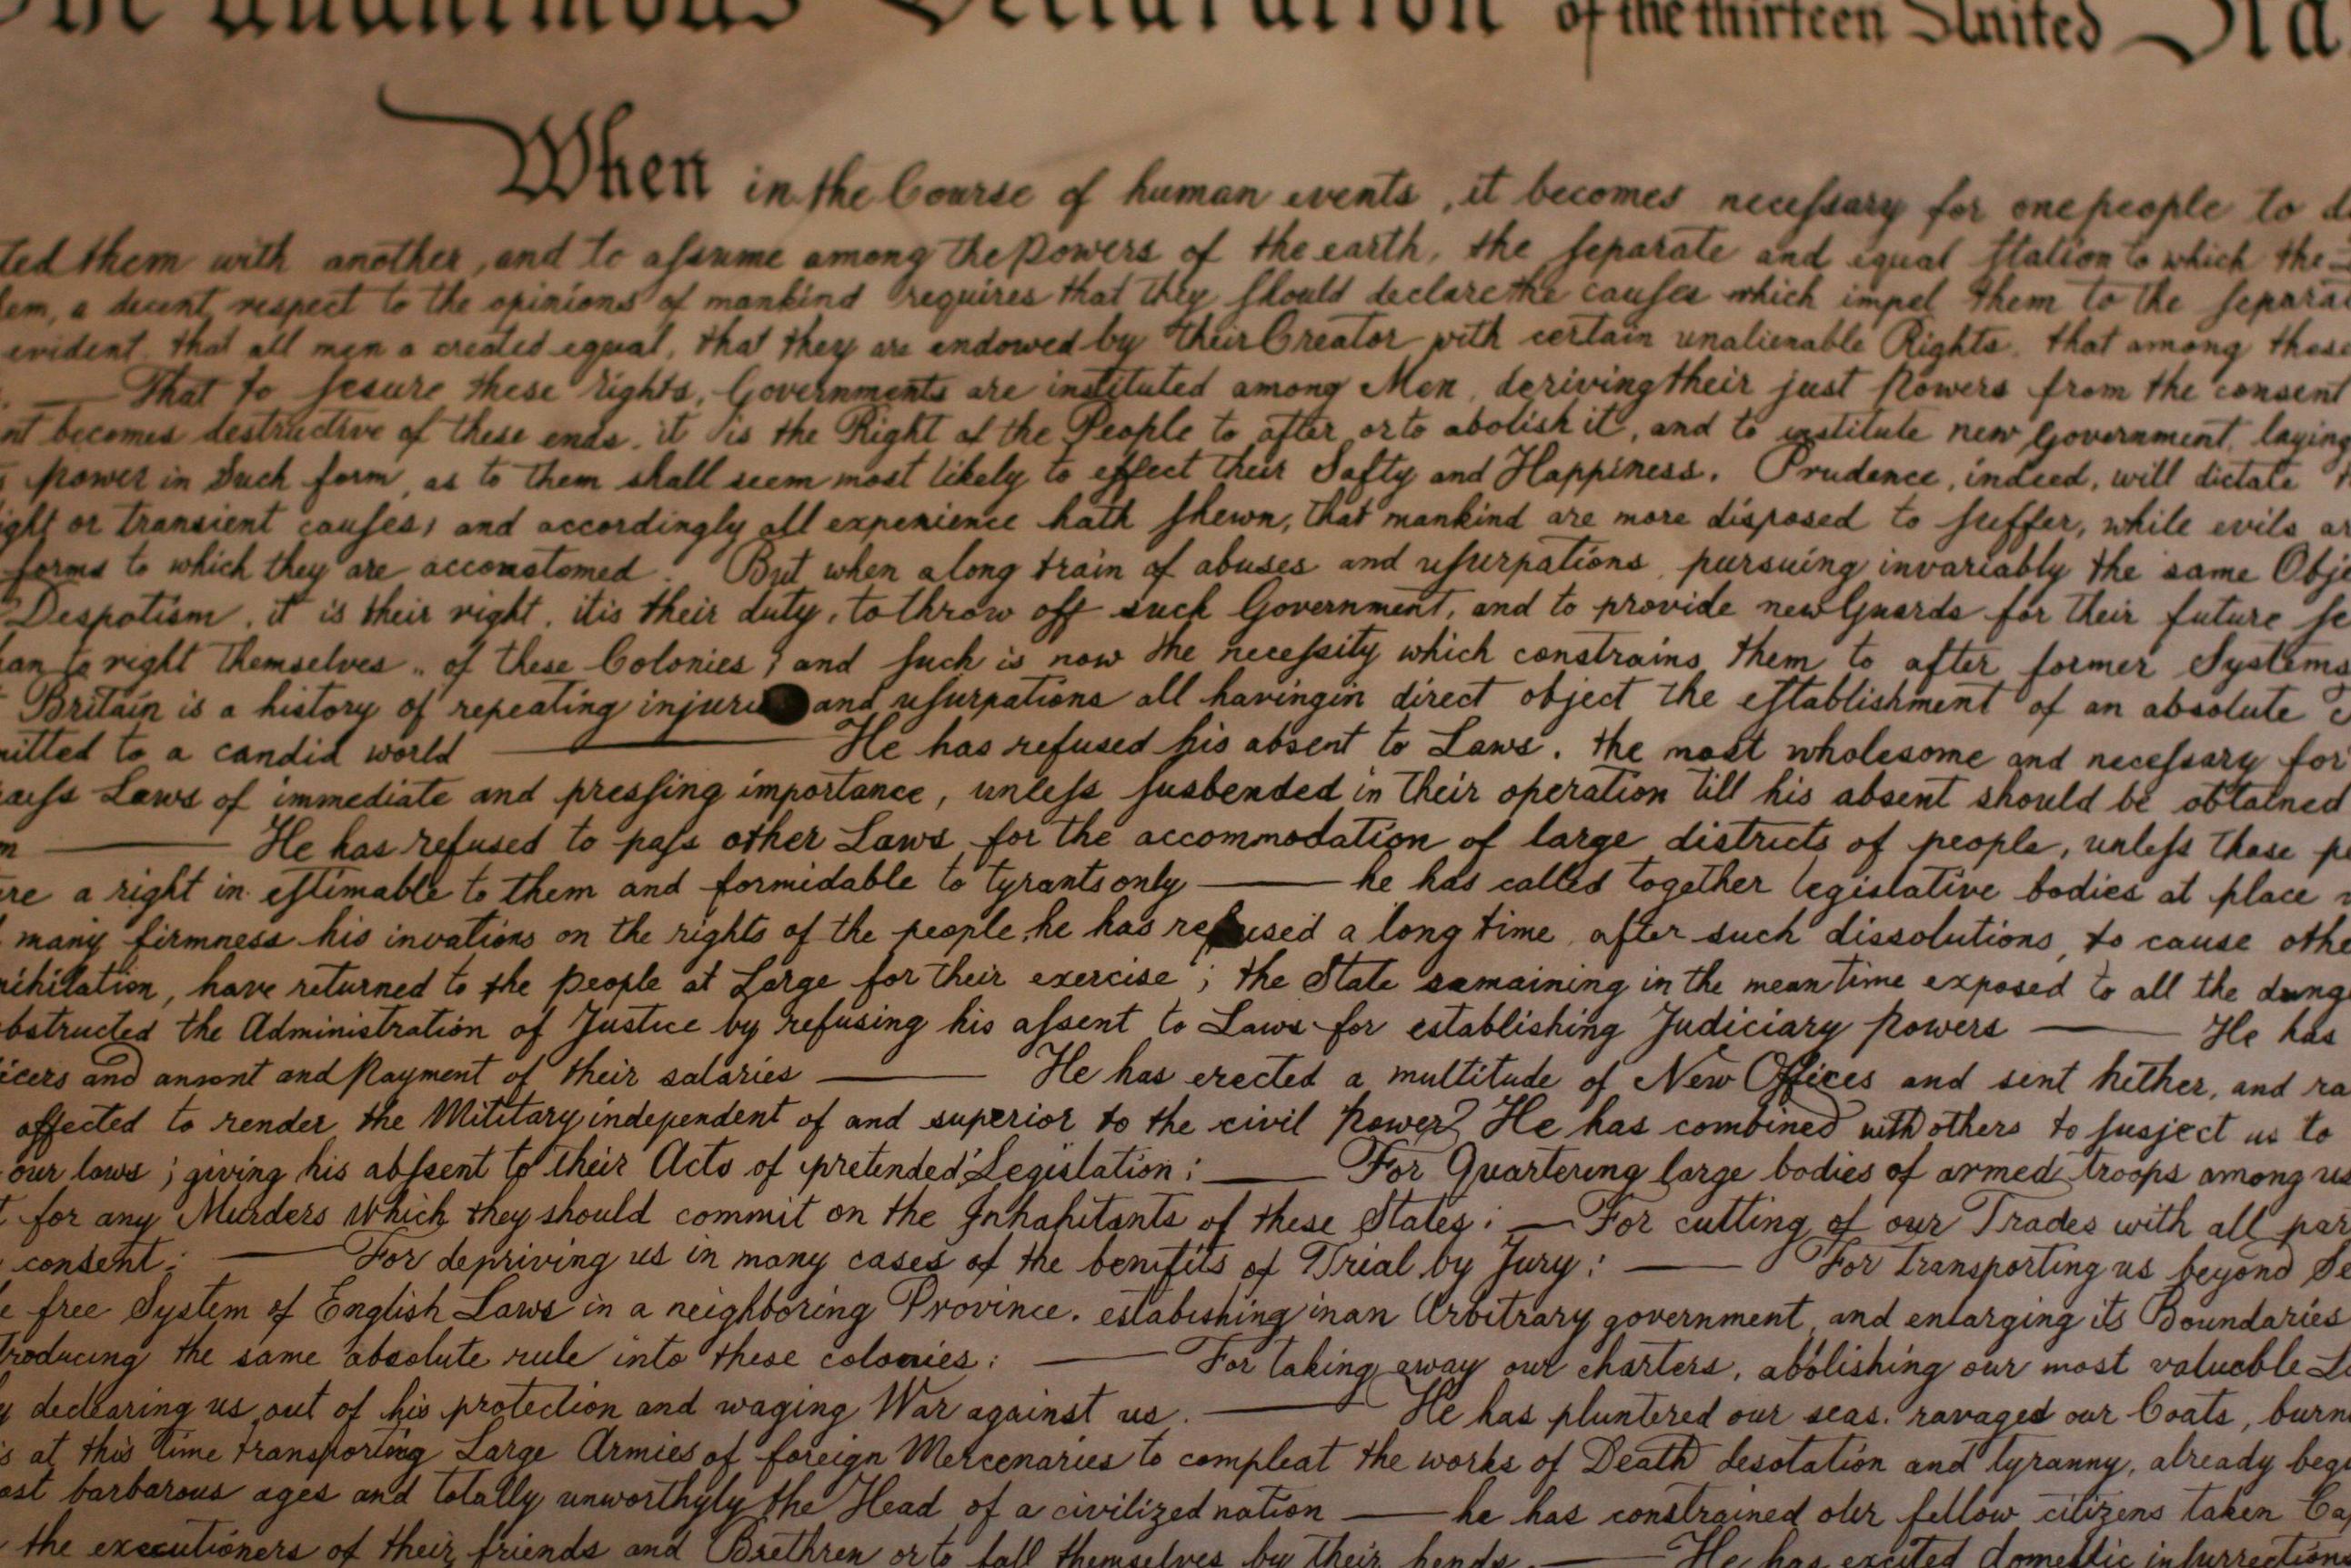 The unanimous Declaration of the thirteen United Sta
When in the Course of human events, it becomes neceſsary for one people to d
ted them with another, and to aſsume among the Powers of the earth, the ſeparate and equal ſtation to which the
em, a decent respect to the opinions of mankind requires that they ſhould declare the cauſes which impel them to the ſepara
evident that all men a created equal, that they are endowed by their Creator with certain unalienable Rights. that among these
. — That to ſesure these rights, Governments are instituted among Men, deriving their just Powers from the consent
nt becomes destructive of these ends. it is the Right of the People to after or to abolish it, and to institute new Government, laying
power in Such form, as to them shall seem most likely to effect their Safty and Happiness. Prudence, indeed, will dictate
ight or transient cauſes; and accordingly all experience hath ſhewn, that mankind are more disposed to ſuffer, while evils ar
forms to which they are accomstomed. But when a long train of abuses and uſurpations, pursuing invariably the same Obje
Despotism, it is their right, it is their duty, to throw off such Government, and to provide new Guards for their future ſe
an to right themselves .. of these Colonies; and ſuch is now the neceſsity which constrains them to after former Systems
Britain is a history of repeating injuri and uſurpations all havingin direct object the eſtablishment of an absolute
mitted to a candid world — He has refused his absent to Laws. the most wholesome and neceſsary for
aſs Laws of immediate and preſsing importance, unleſs ſusbended in their operation till his absent should be obtained
m — He has refused to paſs other Laws for the accommodation of large districts of people, unleſs those pe
re a right in eſtimable to them and formidable to tyrants only — he has called together legislative bodies at place
many firmness his invations on the rights of the people, he has refused a long time, after such dissolutions, to cause othe
nihilation, have returned to the People at Large for their exercise; the State remaining in the mean time exposed to all the dang
bstructed the Administration of Justice by refusing his aſsent to Laws for establishing Judiciary Powers — He has
icers and amont and Payment of their salaries — He has erected a multitude of New Offices and sent hither, and ra
affected to render the Military independent of and superior to the civil Power? He has combined with others to ſusject us to
our laws; giving his abſsent to their Acts of pretended Legislation: — For Quartering large bodies of armed troops among us
for any Murders which they should commit on the Inhabitants of these States: — For cutting of our Trades with all par
consent: — For depriving us in many cases of the benifits of Trial by Jury: — For transporting us beyond Se
e free System of English Laws in a neighboring Province. estabishing in an Arbitrary government, and enlarging its Boundaries
troducing the same absolute rule into these colonies: — For taking away our charters, abolishing our most valuable L
declearing us out of his protection and waging War against us. — He has pluntered our seas. ravaged our Coats, burn
s at this time transporting Large Armies of foreign Mercenaries to compleat the works of Death desotation and tyranny, already beg
ost barbarous ages and totally unworthyly the Head of a civilized nation — he has constrained our fellow citizens taken Ca
the executioners of their friends and Brethren or to fall themselves by their hands. — He has excited domestic inſurrection